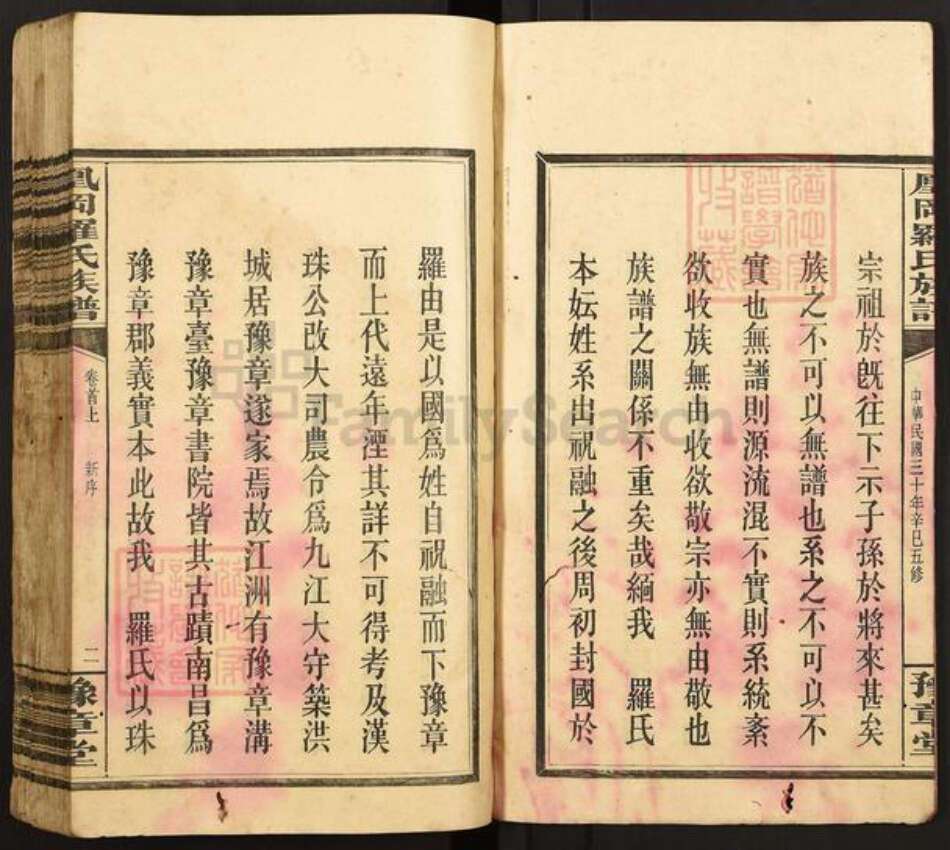 鳳岡羅氏族譜
中華民國三十年辛巳五修
豫章堂
宗祖於旣往下示子孫於將來甚矣
族之不可以無譜也系之不可以不
實也無譜則源流混不實則系統紊
欲收族無由收欲敬宗亦無由敬也
族譜之關係不重矣哉緬我 羅氏
本妘姓系出祝融之後周初封國於
羅由是以國爲姓自祝融而下豫章
而上代遠年湮其詳不可得考及漢
珠公改大司農令爲九江大守築洪
城居豫章遂家焉故江洲有豫章溝
豫章臺豫章書院皆其古蹟南昌爲
豫章郡義實本此故我 羅氏以珠
鳳岡羅氏族譜
卷首上 新序
二
豫章堂
FamilySearch